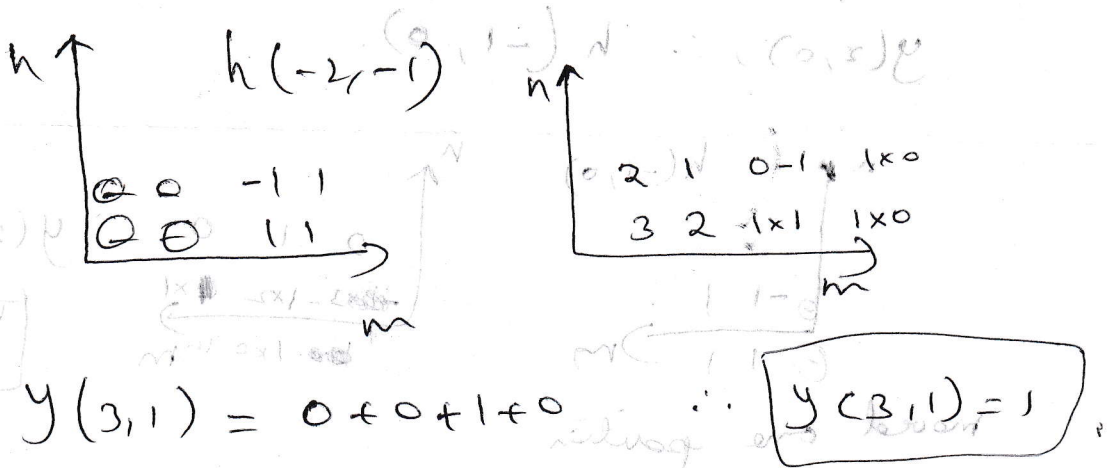 n h(-2,-1)
0 0 -1 1
0 0 1 1
m
n
2 1 0-1 1x0
3 2 1x1 1x0
m
y(3,1) = 0+0+1+0 ∴ y(3,1)=1.